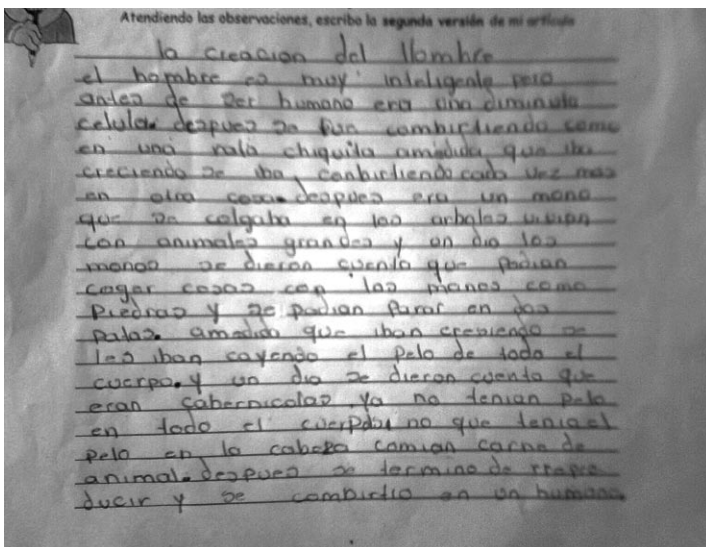 Atendiendo las observaciones, escribo la segunda versión de mi artículo
la creacion del Hombre
el hombre es muy inteligente pero
antes de ser humano era una diminuta
celula. despues se fue combirtiendo como
en una rata chiquita amedida que iba
creciendo se iba, conbirtiendo cada vez mas
en otra cosa. despues era un mono
que se colgaba en los arboles vivian
con animales grandes y un dia los
monos se dieron cuenta que podian
coger cosas con las manos como
Piedras y se podian parar en dos
patas. amedida que iban creciendo se
les iban cayendo el pelo de todo el
cuerpo. y un dia se dieron cuenta que
eran cabernicolas ya no tenian pelo
en todo el cuerpo no que tenia el
pelo en la cabeza comian carne de
animal. despues se termino de rrepro
ducir y se combirtio en un humano.